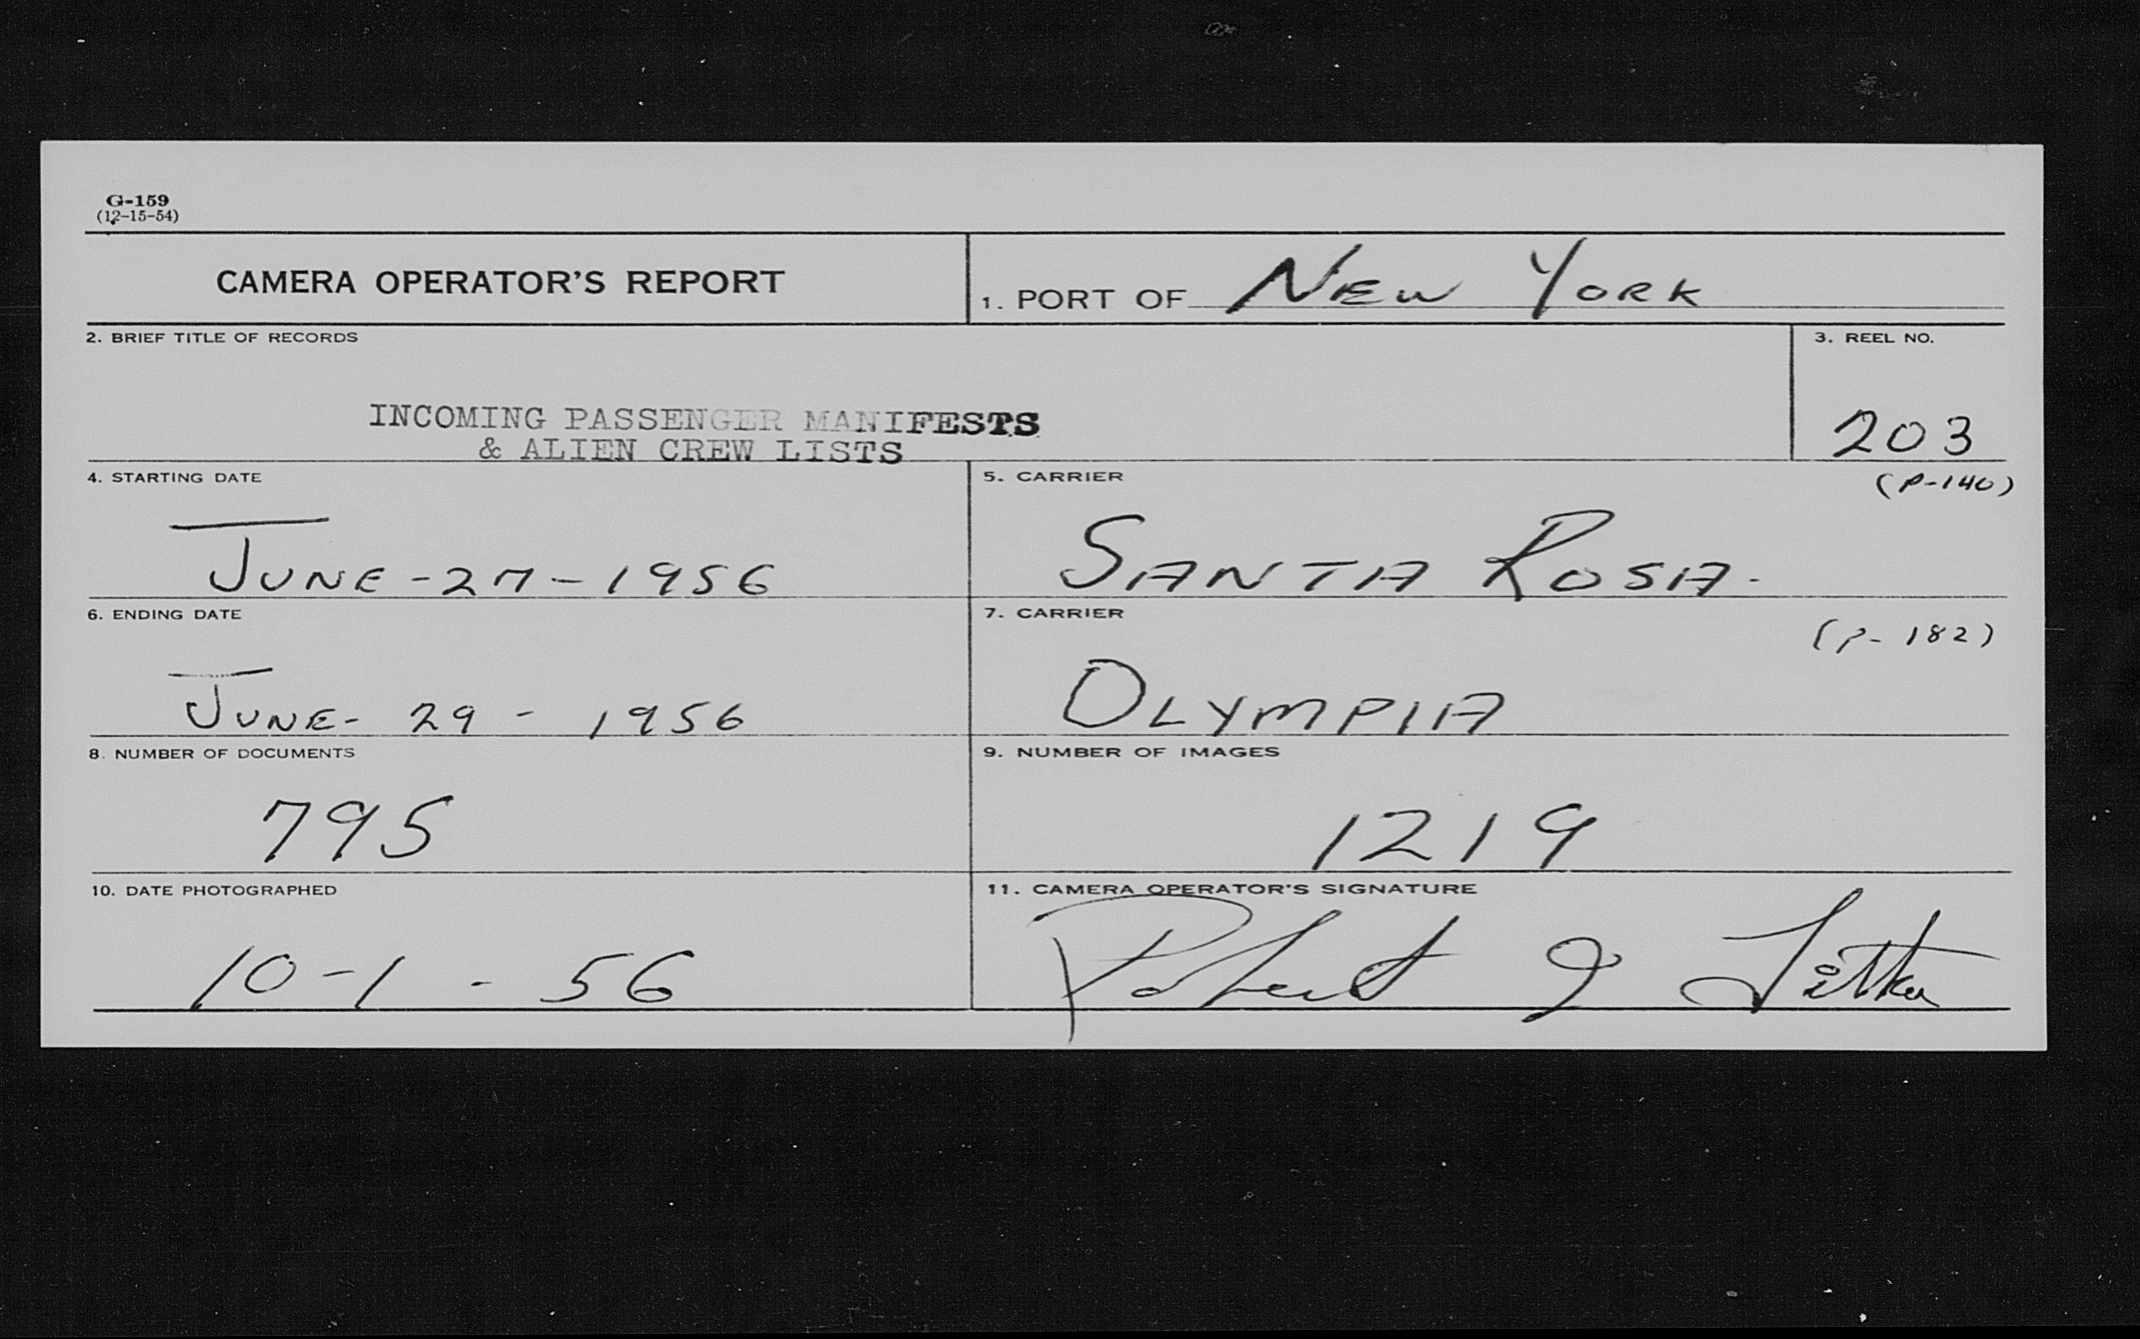 G-159
(12-15-54)
CAMERA OPERATOR'S REPORT
1. PORT OF NEW YORK
2. BRIEF TITLE OF RECORDS
INCOMING PASSENGER MANIFESTS
& ALIEN CREW LISTS
3. REEL NO.
203
4. STARTING DATE
JUNE-27-1956
5. CARRIER
(P-140)
SANTA ROSA.
6. ENDING DATE
JUNE- 29 - 1956
7. CARRIER
(P- 182)
OLYMPIA
8. NUMBER OF DOCUMENTS
795
9. NUMBER OF IMAGES
1219
10. DATE PHOTOGRAPHED
10-1-56
11. CAMERA OPERATOR'S SIGNATURE
Robert J